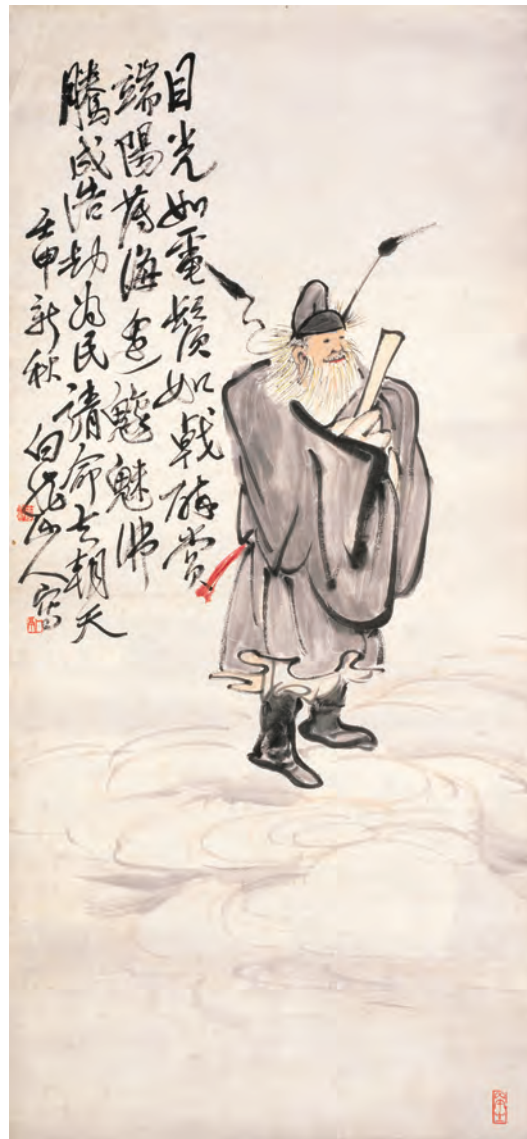 目光如電鬚如戟醉賞
端陽薄海邊魑魅沸
騰成浩劫為民請命去朝天
壬申新秋 白龍山人寫